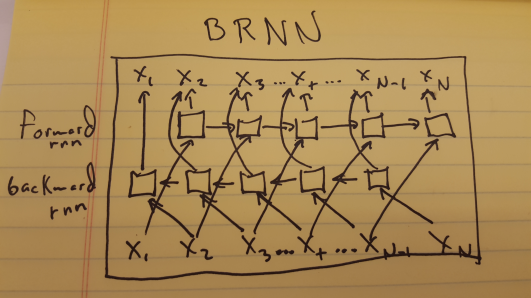 BRNN
X1 X2 X3 ... X+ ... XN-1 XN
Forward
rnn
backward
rnn
X1 X2 X3 ... X+ ... XN-1 XN